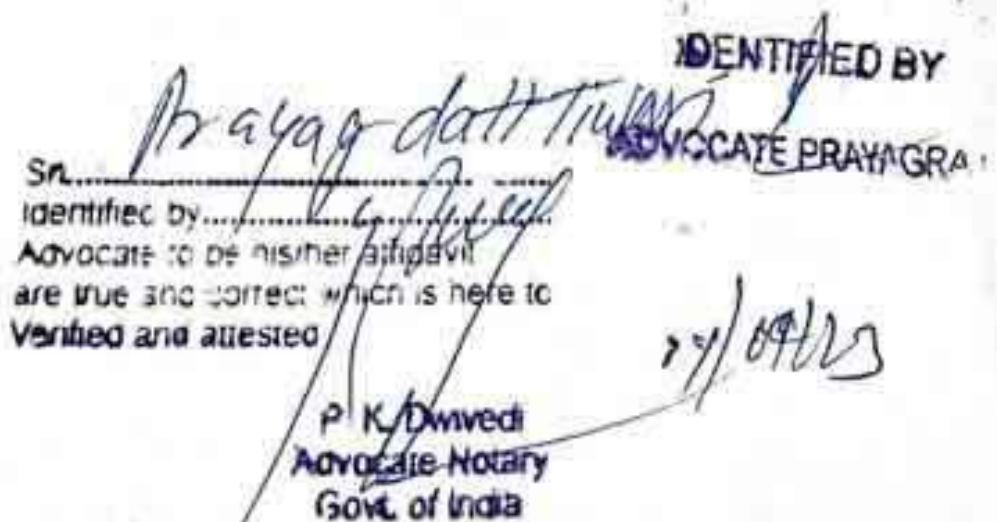 IDENTIFIED BY
Prayag datt Tiwari
ADVOCATE PRAYAGRA
Sri...............................................
Identified by...............................................
Advocate to be his/her affidavit
are true and correct which is here to
Verified and attested
P K Dwivedi
Advocate Notary
Govt. of India